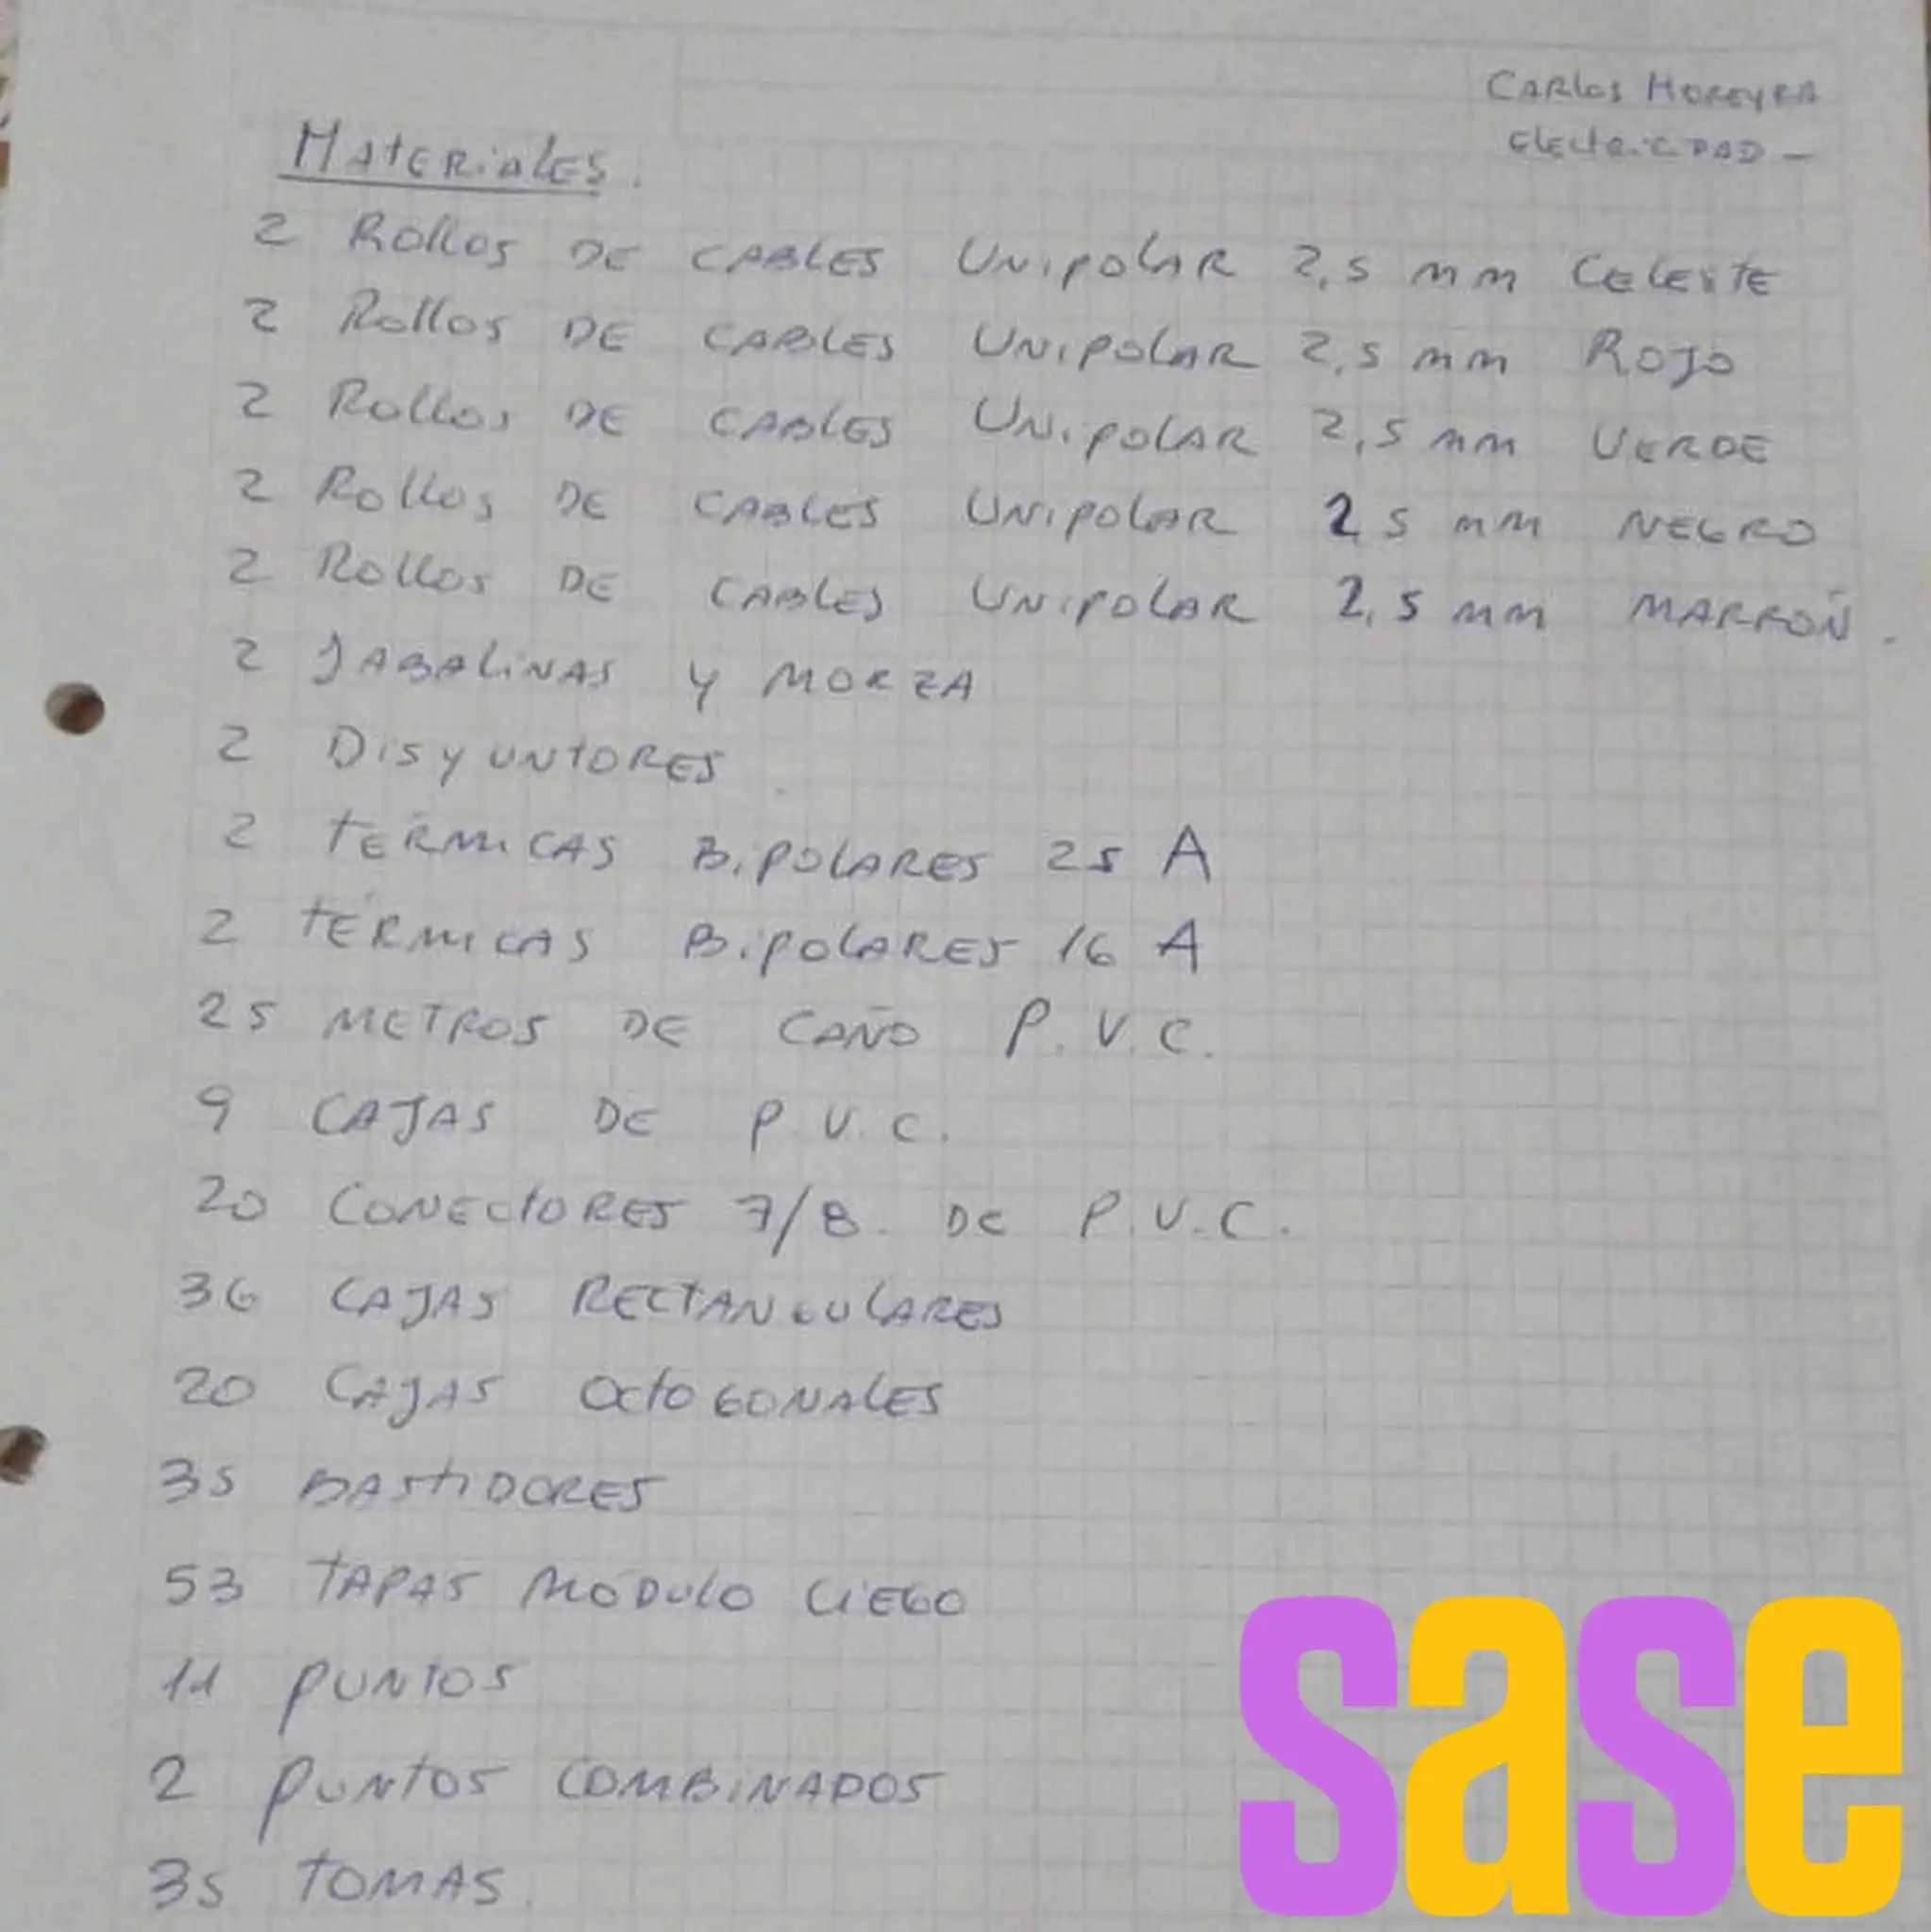 Carlos Moreyra
Electricidad -
Materiales.
2 Rollos de cables unipolar 2,5 mm celeste
2 Rollos de cables unipolar 2,5 mm Rojo
2 Rollos de cables unipolar 2,5 mm verde
2 Rollos de cables unipolar 2,5 mm negro
2 Rollos de cables unipolar 2,5 mm marrón.
2 Jabalinas y morza
2 Disyuntores
2 térmicas Bipolares 25 A
2 térmicas Bipolares 16 A
25 metros de caño P.V.C.
9 cajas de P.V.C.
20 conectores 7/8 de P.V.C.
36 cajas rectangulares
20 cajas octogonales
35 bastidores
53 tapas módulo ciego
11 puntos
2 puntos combinados
35 tomas.
sase